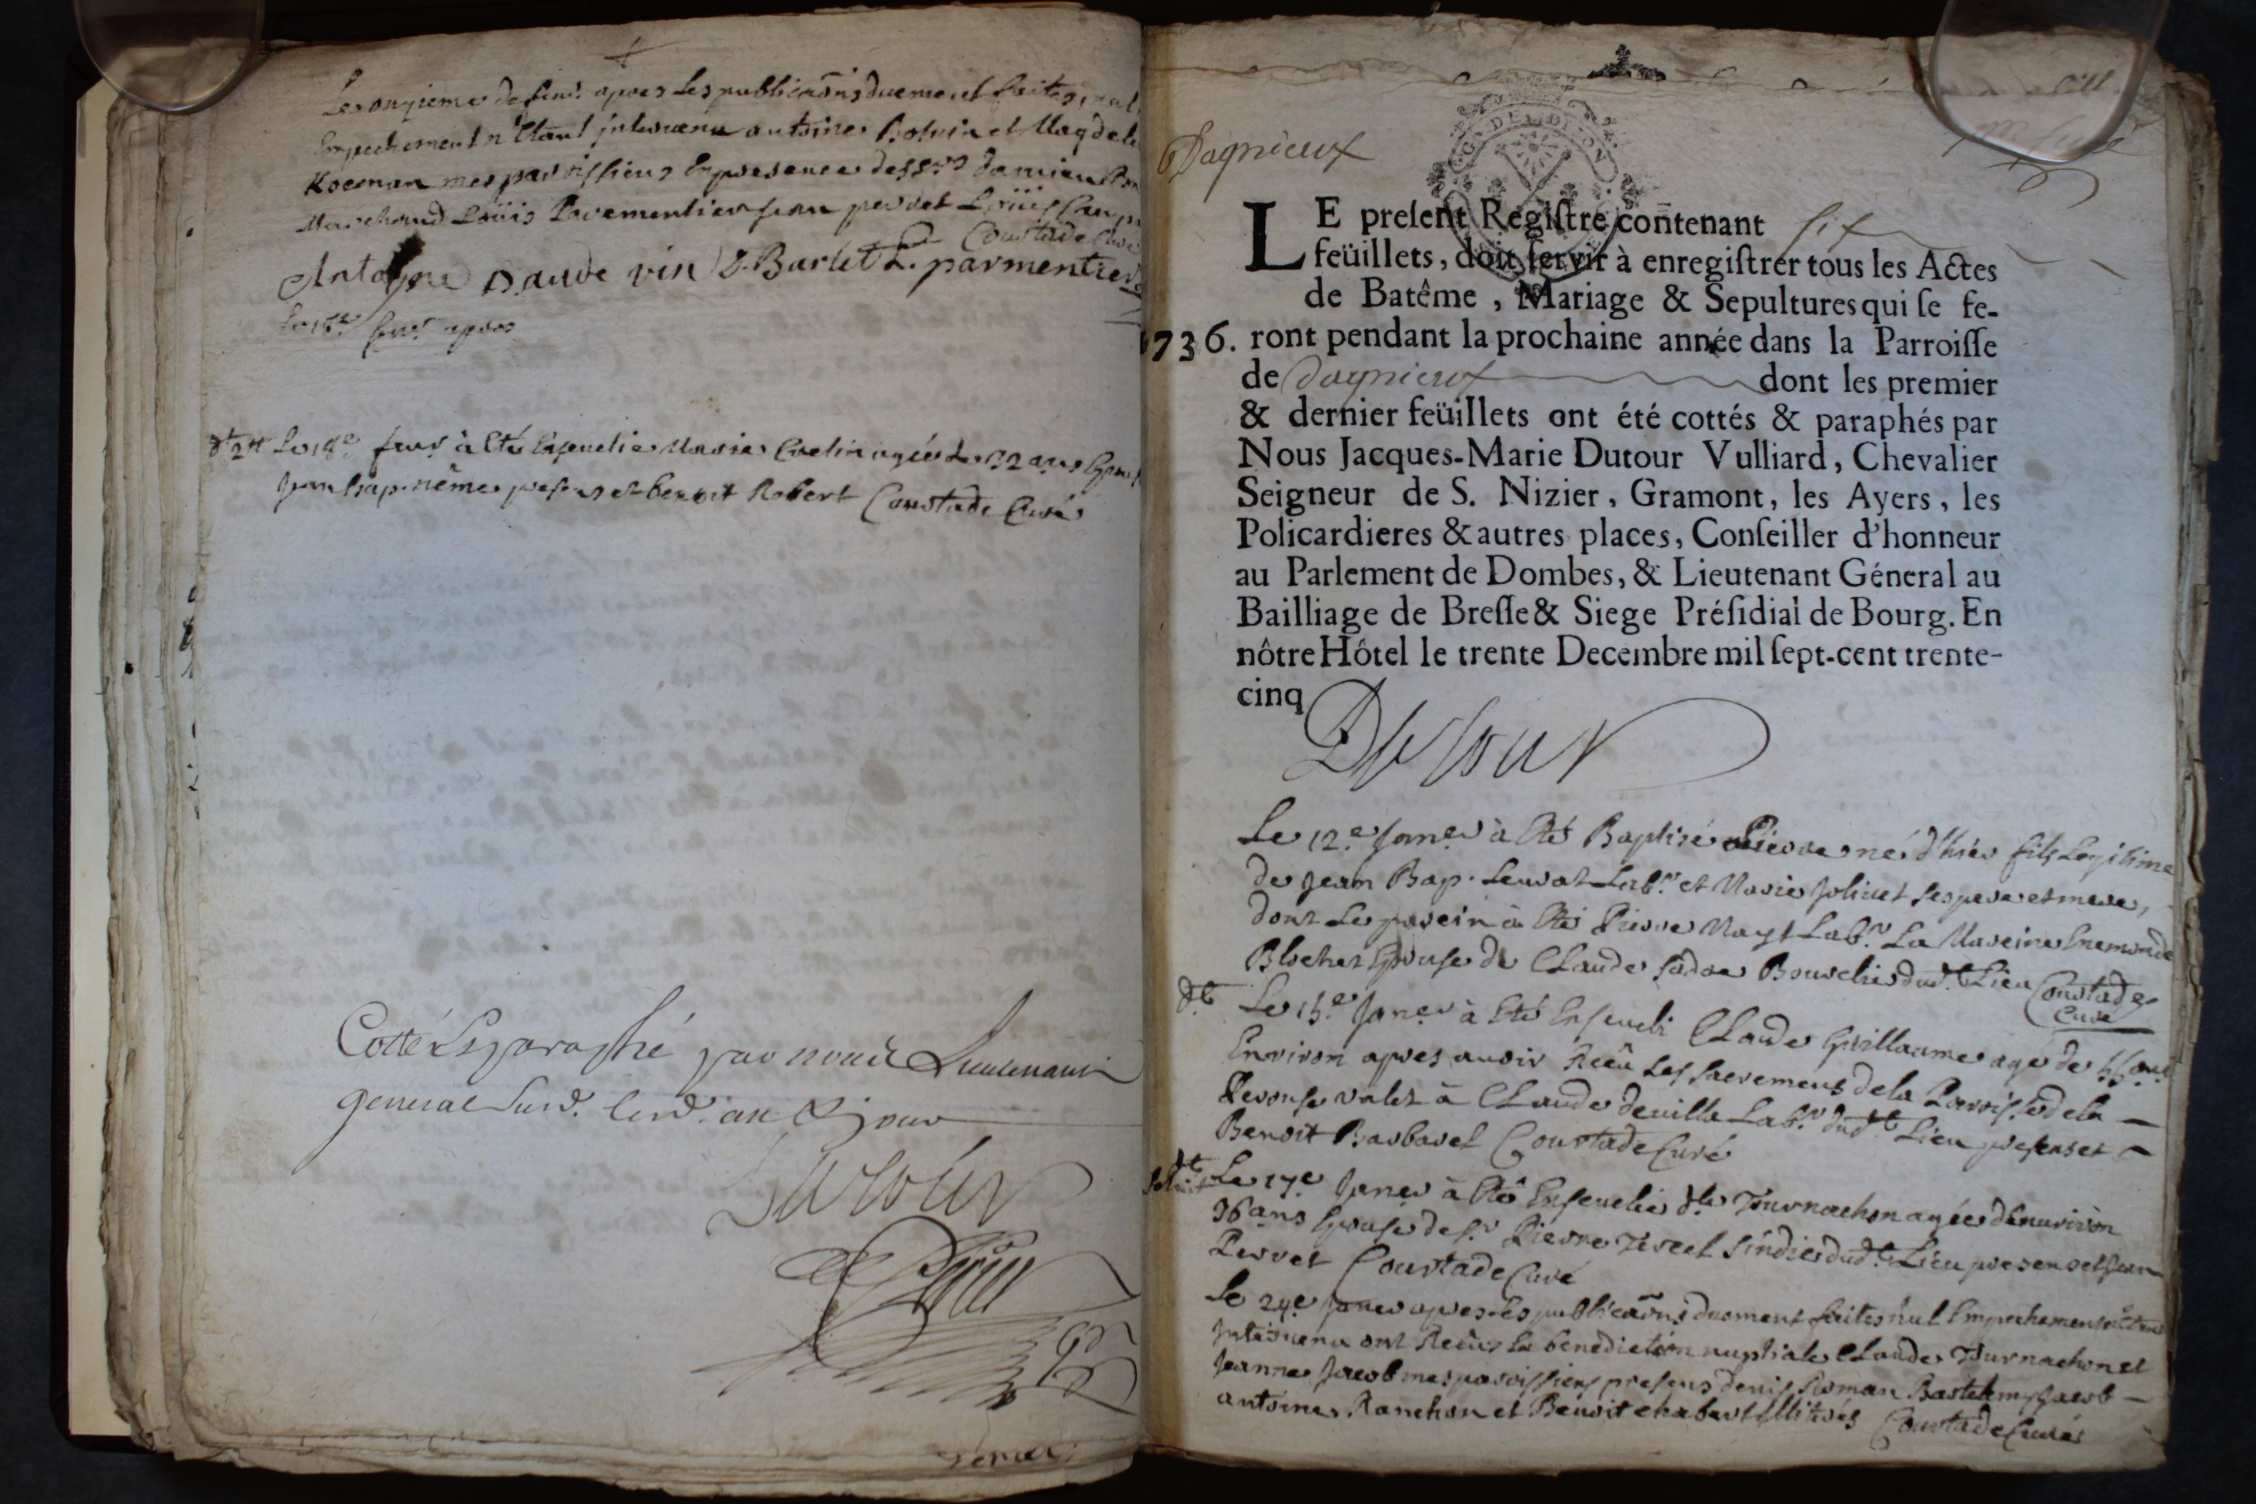 Le onzieme de fevr. apres les publicaôns duement faites, nul
Empechement n'etant intervenu antoine Bolvin et Magdel
mes paroissiens En presence des Srs damien
Marchand Loüis Parementier jean perret Loüis
Courtade Curé
Antoyne Daude vin J. Barlet L. parmentier
Le 15e fevr. apres
Le 18e fevr à été Ensevelie Marie agée de 32 ans Epouse
jean bap. même presens et benoit Robert Courtade Curé
Cotté & paraphé par nous Lieutenant
general susd. lesd. an & jour
Dutour
Dagnieux
LE preſent Regiſtre contenant six
feüillets, doit ſervir à enregiſtrer tous les Actes
de Batême, Mariage & Sepultures qui ſe fe-
1736. ront pendant la prochaine année dans la Parroiſſe
de Dagnieux dont les premier
& dernier feüillets ont été cottés & paraphés par
Nous Jacques-Marie Dutour Vulliard, Chevalier
Seigneur de S. Nizier, Gramont, les Ayers, les
Policardieres & autres places, Conſeiller d'honneur
au Parlement de Dombes, & Lieutenant Géneral au
Bailliage de Breſſe & Siege Préſidial de Bourg. En
nôtre Hôtel le trente Decembre mil ſept-cent trente-
cinq
Dutour
Le 12.e Janer à été Baptisé Pierre né d'hier fils Legitime
de Jean Bap. Leurat Labr. et Marie Jolivet ses pere et mere,
dont le parein à été Pierre Labr. La Mareine Enemonde
Blochet Epouse de Claude Boucher dud.t Lieu Courtade
Curé
Le 15.e Janer à été Enseveli Claude Guillaume agé de 55 ans
Environ apres avoir Receu Les sacremens de la Paroisse de la
valet à Claude devilla Labr. dud.t Lieu presens et
Benoit Barbaret Courtade Curé
Le 17e Janer à été Ensevelie dle Tournachon agée d'environ
36 ans Epouse de sr Pierre Sindic dud.t Lieu presens et jean
Perret Courtade Curé
Le 24e Janer apres les publicaôns duement faites nul Empechement n'étant
Intervenu ont Receu La benediction nuptiale Claude Tournachon et
Jeanne Jacob mes paroissiens presens denis Bartelemy Jacob
antoine Ranchon et Benoit chabert Illitérés Courtade Curé